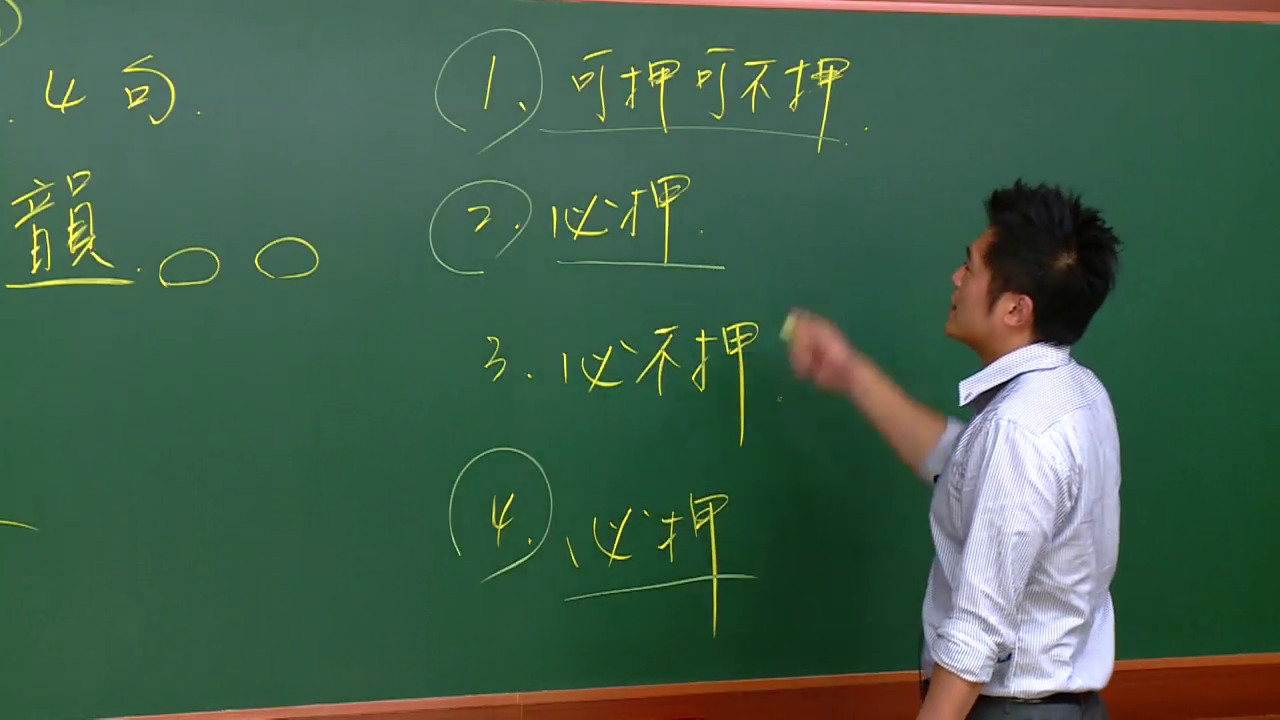 4句.
韻.○○
1、可押可不押.
2.必押.
3.必不押.
4.必押